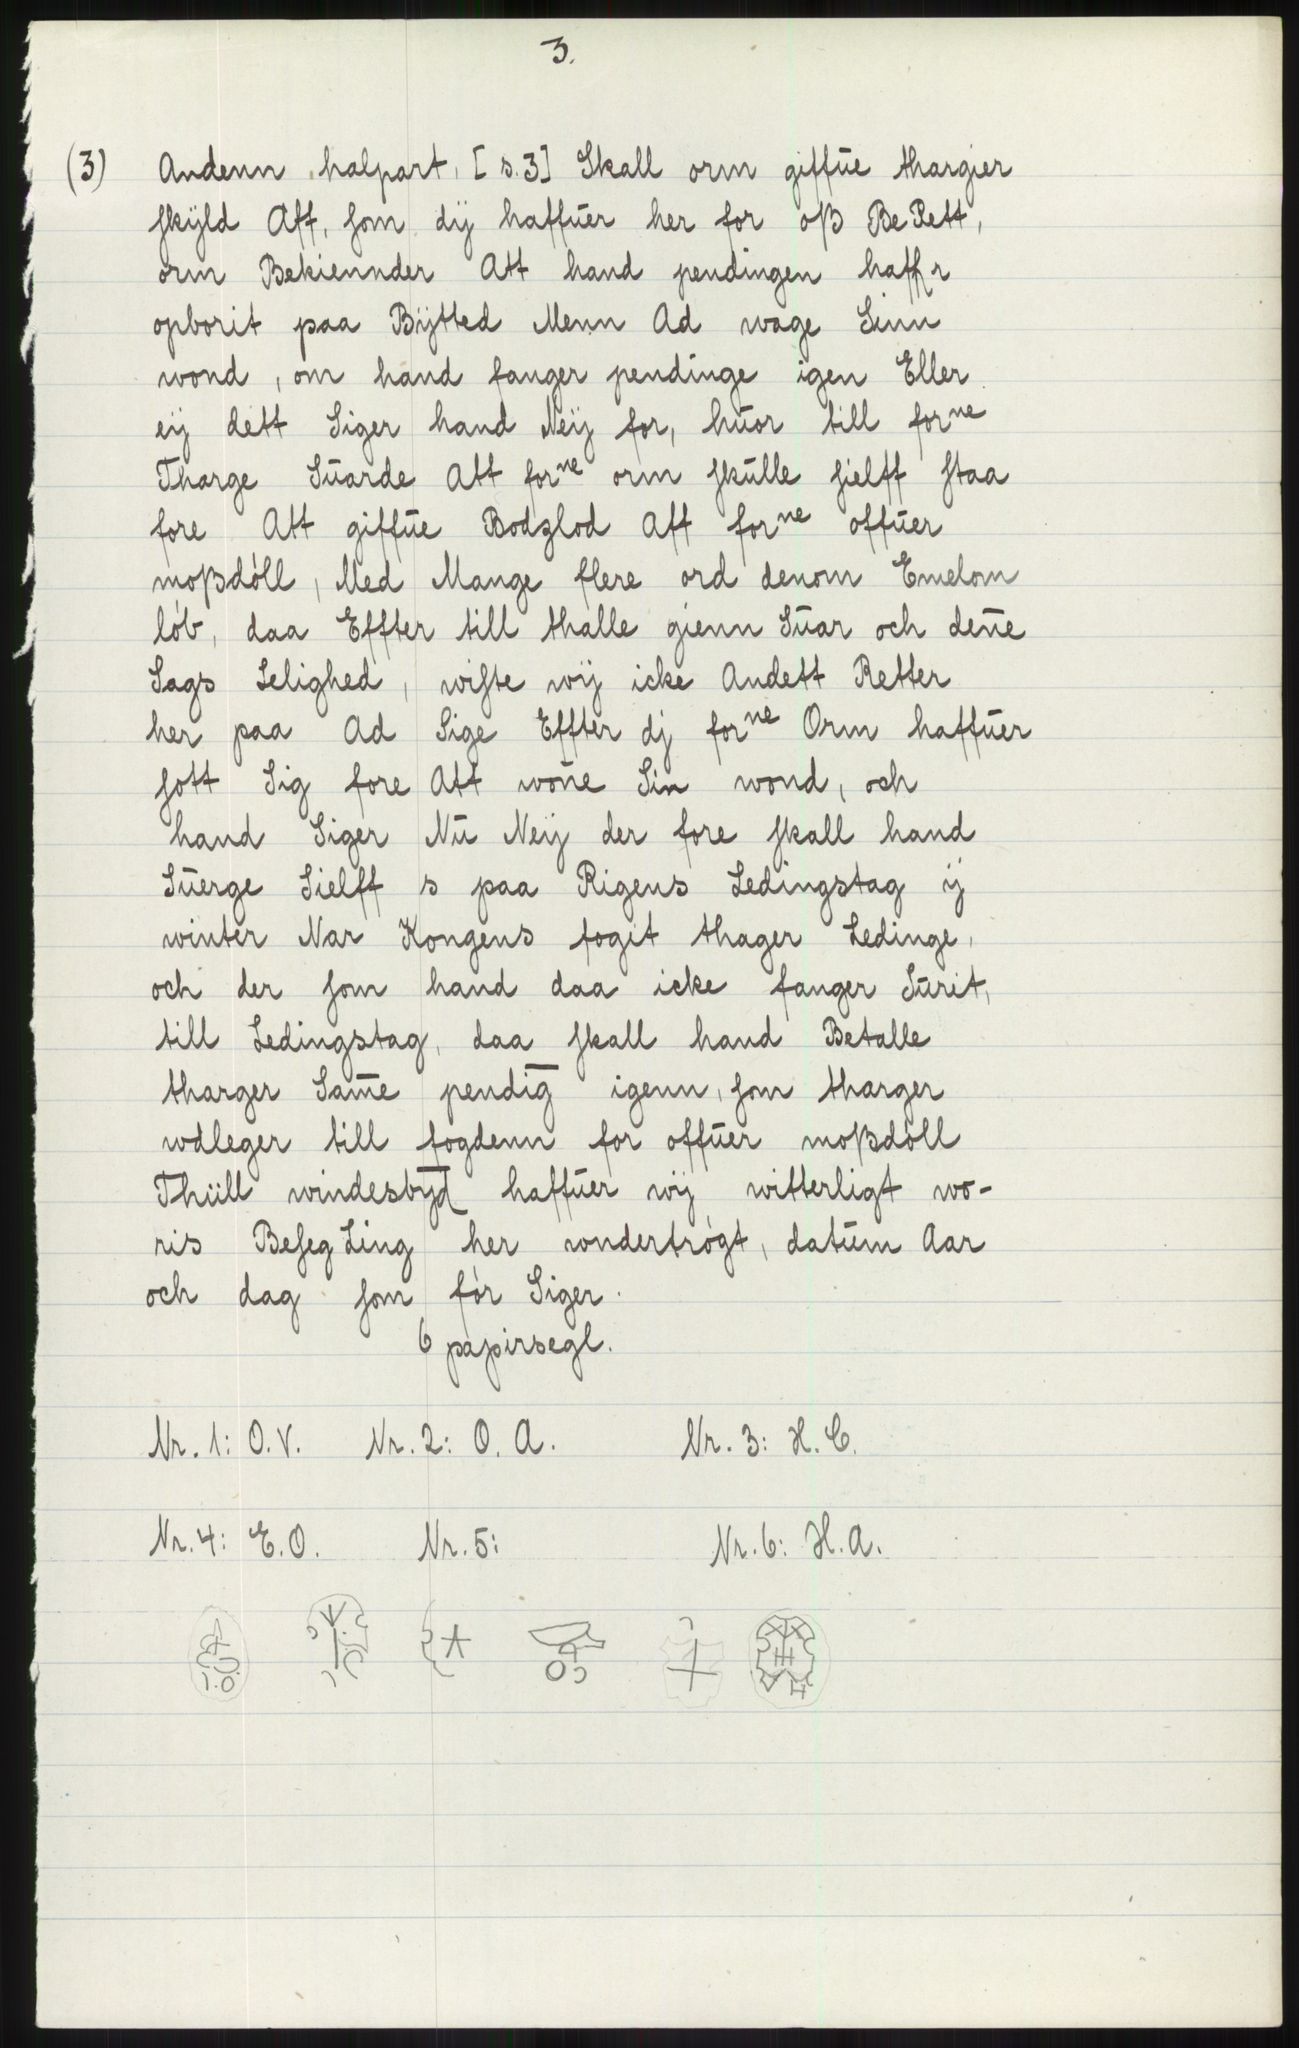 3.
(3) Andenn halpart, [s.3] Skall orm giffūe thargier
skÿld Aff, som dÿ haffūer her for oß BeRett,
orm Bekiennder Att hand pendingen haffr
opborit paa Bÿtted Menn Ad wage Sinn
wond, om hand fanger pendinge igen Eller
eÿ dett Siger hand Neÿ for, hūor till forne
Tharge Sūarde Att forne orm skūlle sielff staa
fore Att giffūe Bodzlod Aff forne offūer
moßdöll, Med Mange flere ord denom Emelom
löb, daa Effter till thalle gienn Sūar och den̄e
Sags Lelighed, wiste wÿ icke Andett Retter
her paa Ad Sige Effter dj forne Orm haffūer
sott Sig fore Att won̄e Sin wond, och
hand Siger Nū Neÿ der fore skall hand
Sūerge Sielff s paa Rigens Ledingstag ÿ
winter Nar Kongens fogit thager Ledinge,
och der som hand daa icke fanger Sūrit,
till Ledingstag, daa skall hand Betalle
tharger Sam̄e pendig̅ igenn, som tharger
wdleger till fogdenn for offūer moßdöll
Thüll windesbÿd haffūer wÿ witterligt wo-
ris BesegLing her wndertrögt, datūm Aar
och dag som för Siger.
6 papirsegl.
Nr. 1: O.V. Nr. 2: O. A. Nr. 3: H. C.
Nr. 4: E.O. Nr. 5: Nr. 6: H.A.